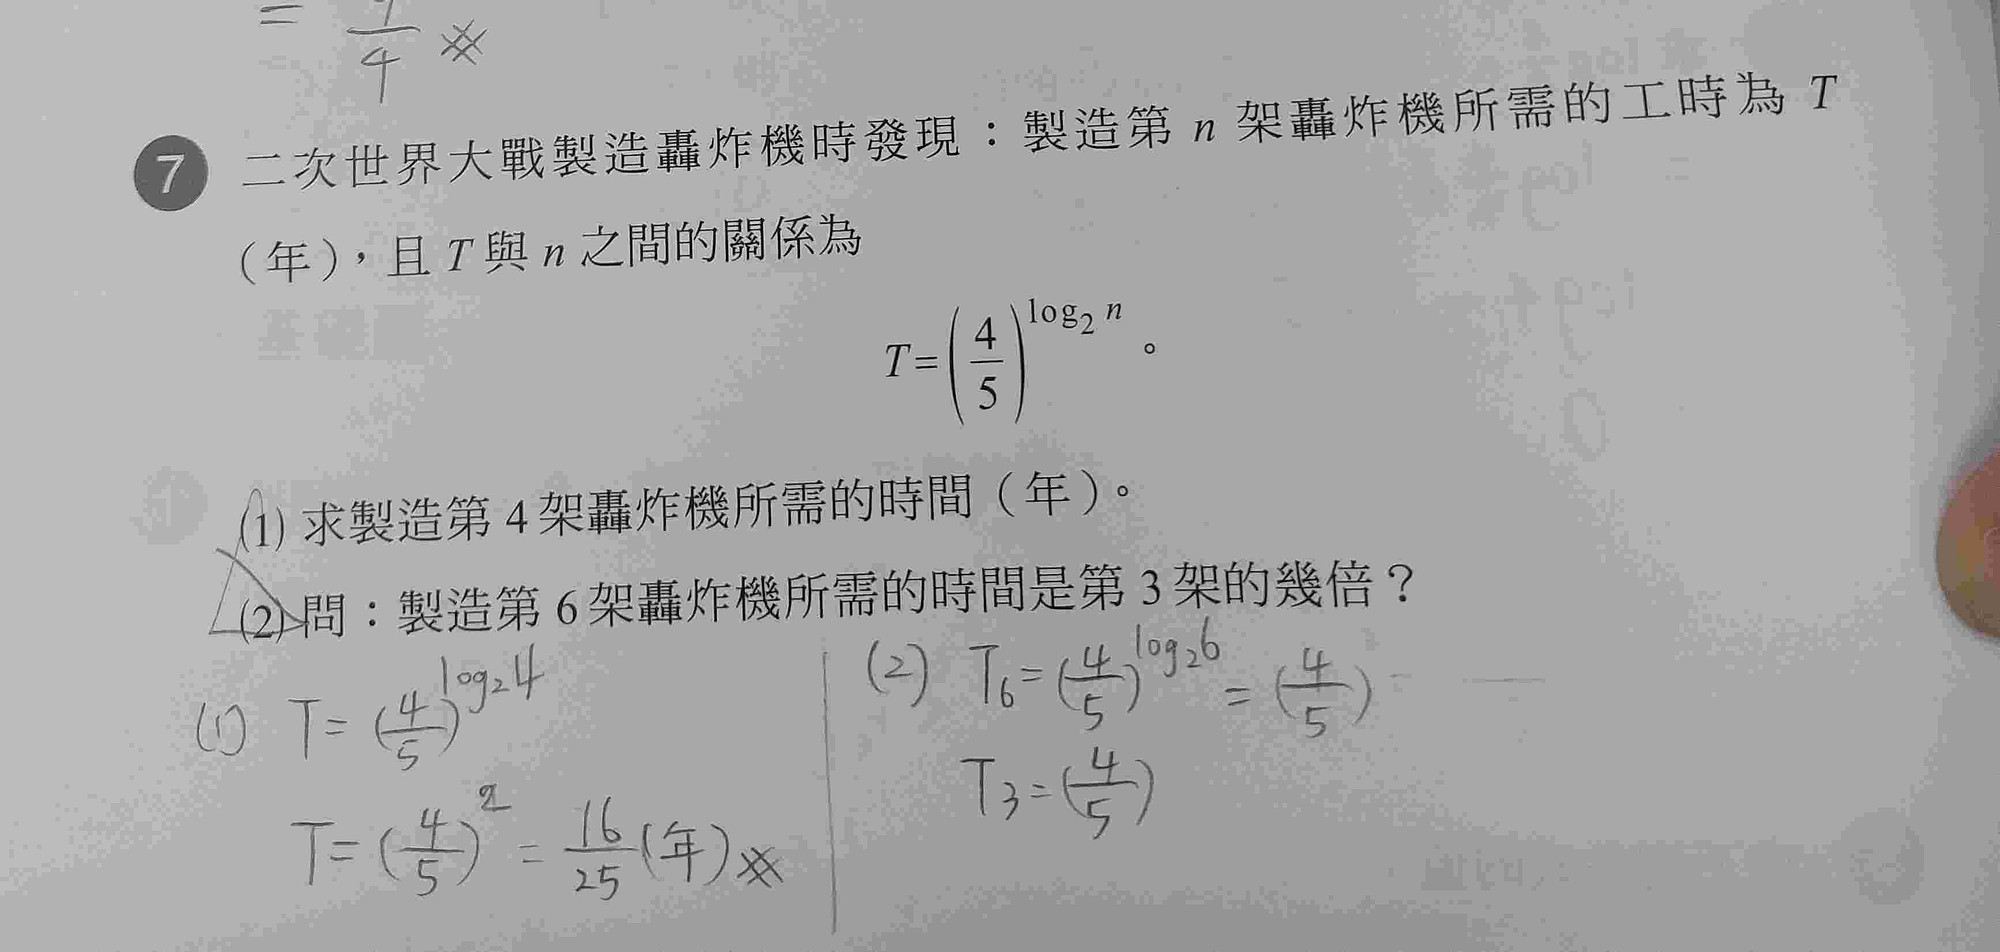 = 4 ※
7 二次世界大戰製造轟炸機時發現：製造第 n 架轟炸機所需的工時為 T
（年），且 T 與 n 之間的關係為
T=(4/5)^log₂ n 。
(1) 求製造第 4 架轟炸機所需的時間（年）。
(2) 問：製造第 6 架轟炸機所需的時間是第 3 架的幾倍？
(1) T=(4/5)^log₂4
T=(4/5)^2 = 16/25 (年)※
(2) T₆=(4/5)^log₂6 = (4/5)
T₃=(4/5)